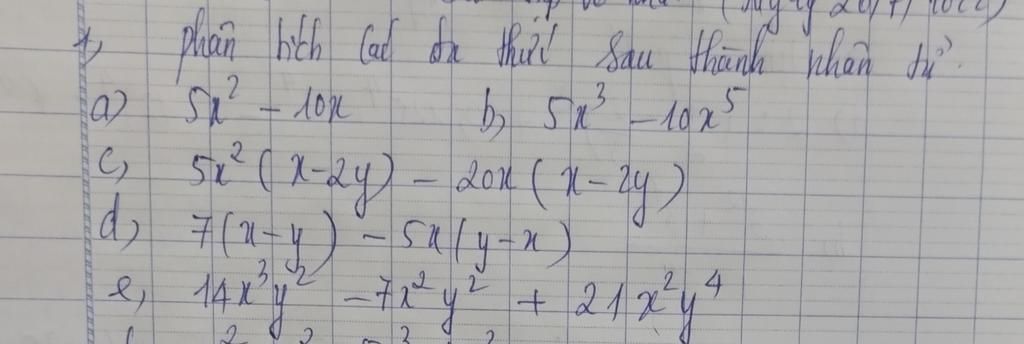 1, phân tích các đa thức sau thành nhân tử
a) 5x² - 10x b, 5x³ - 10x⁵
c, 5x² (x - 2y) - 20x (x - 2y)
d, 7(x - y) - 5x (y - x)
e, 14x³y² - 7x²y² + 21x²y⁴